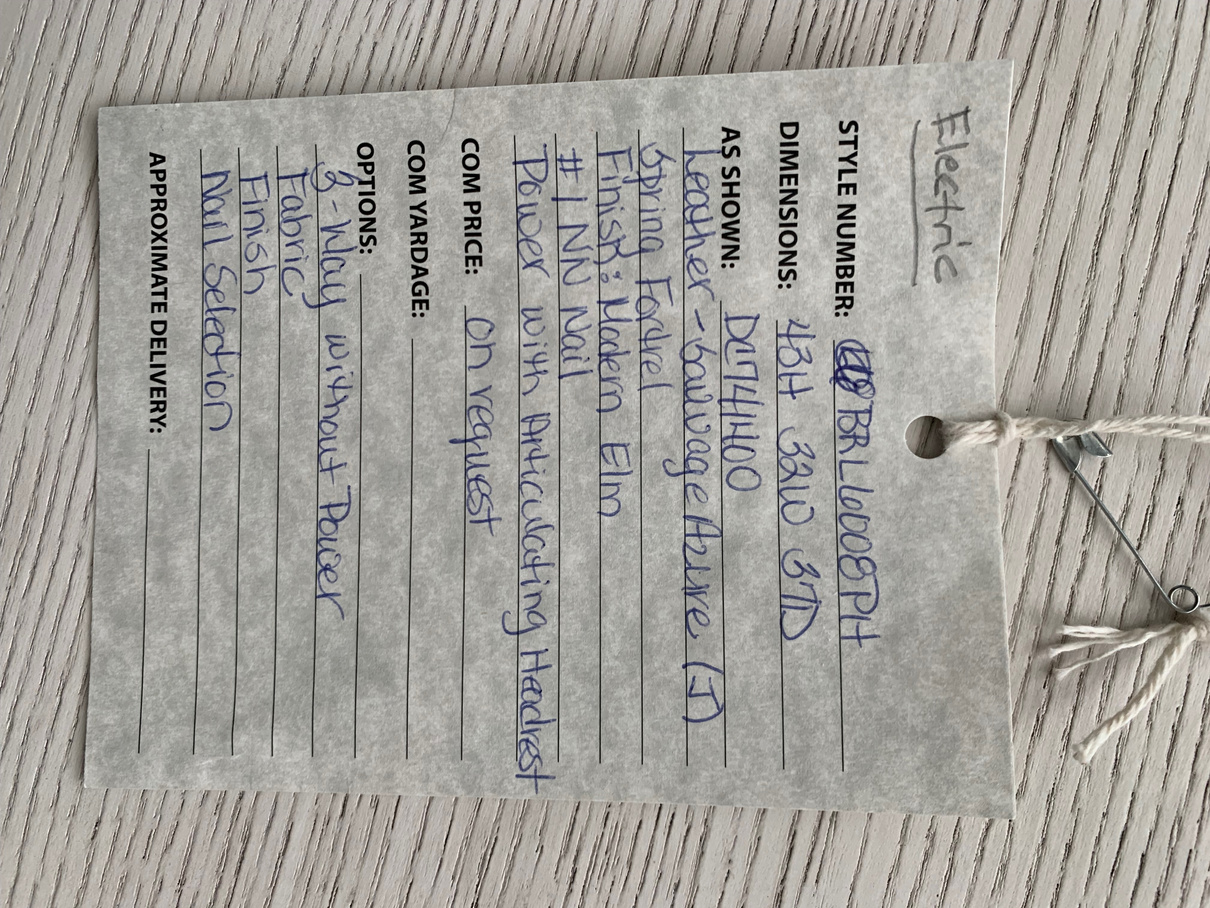 Electric
STYLE NUMBER: BRL6008PH
DIMENSIONS: 43H 32W 37D
AS SHOWN: DC741400
Leather - Sauvage Azure (J)
Spring Fortrel
Finish: Modern Elm
#1 NN Nail
Power with Articulating Headrest
COM PRICE: on request
COM YARDAGE:
OPTIONS:
3-Way without Power
Fabric
Finish
Nail Selection
APPROXIMATE DELIVERY: